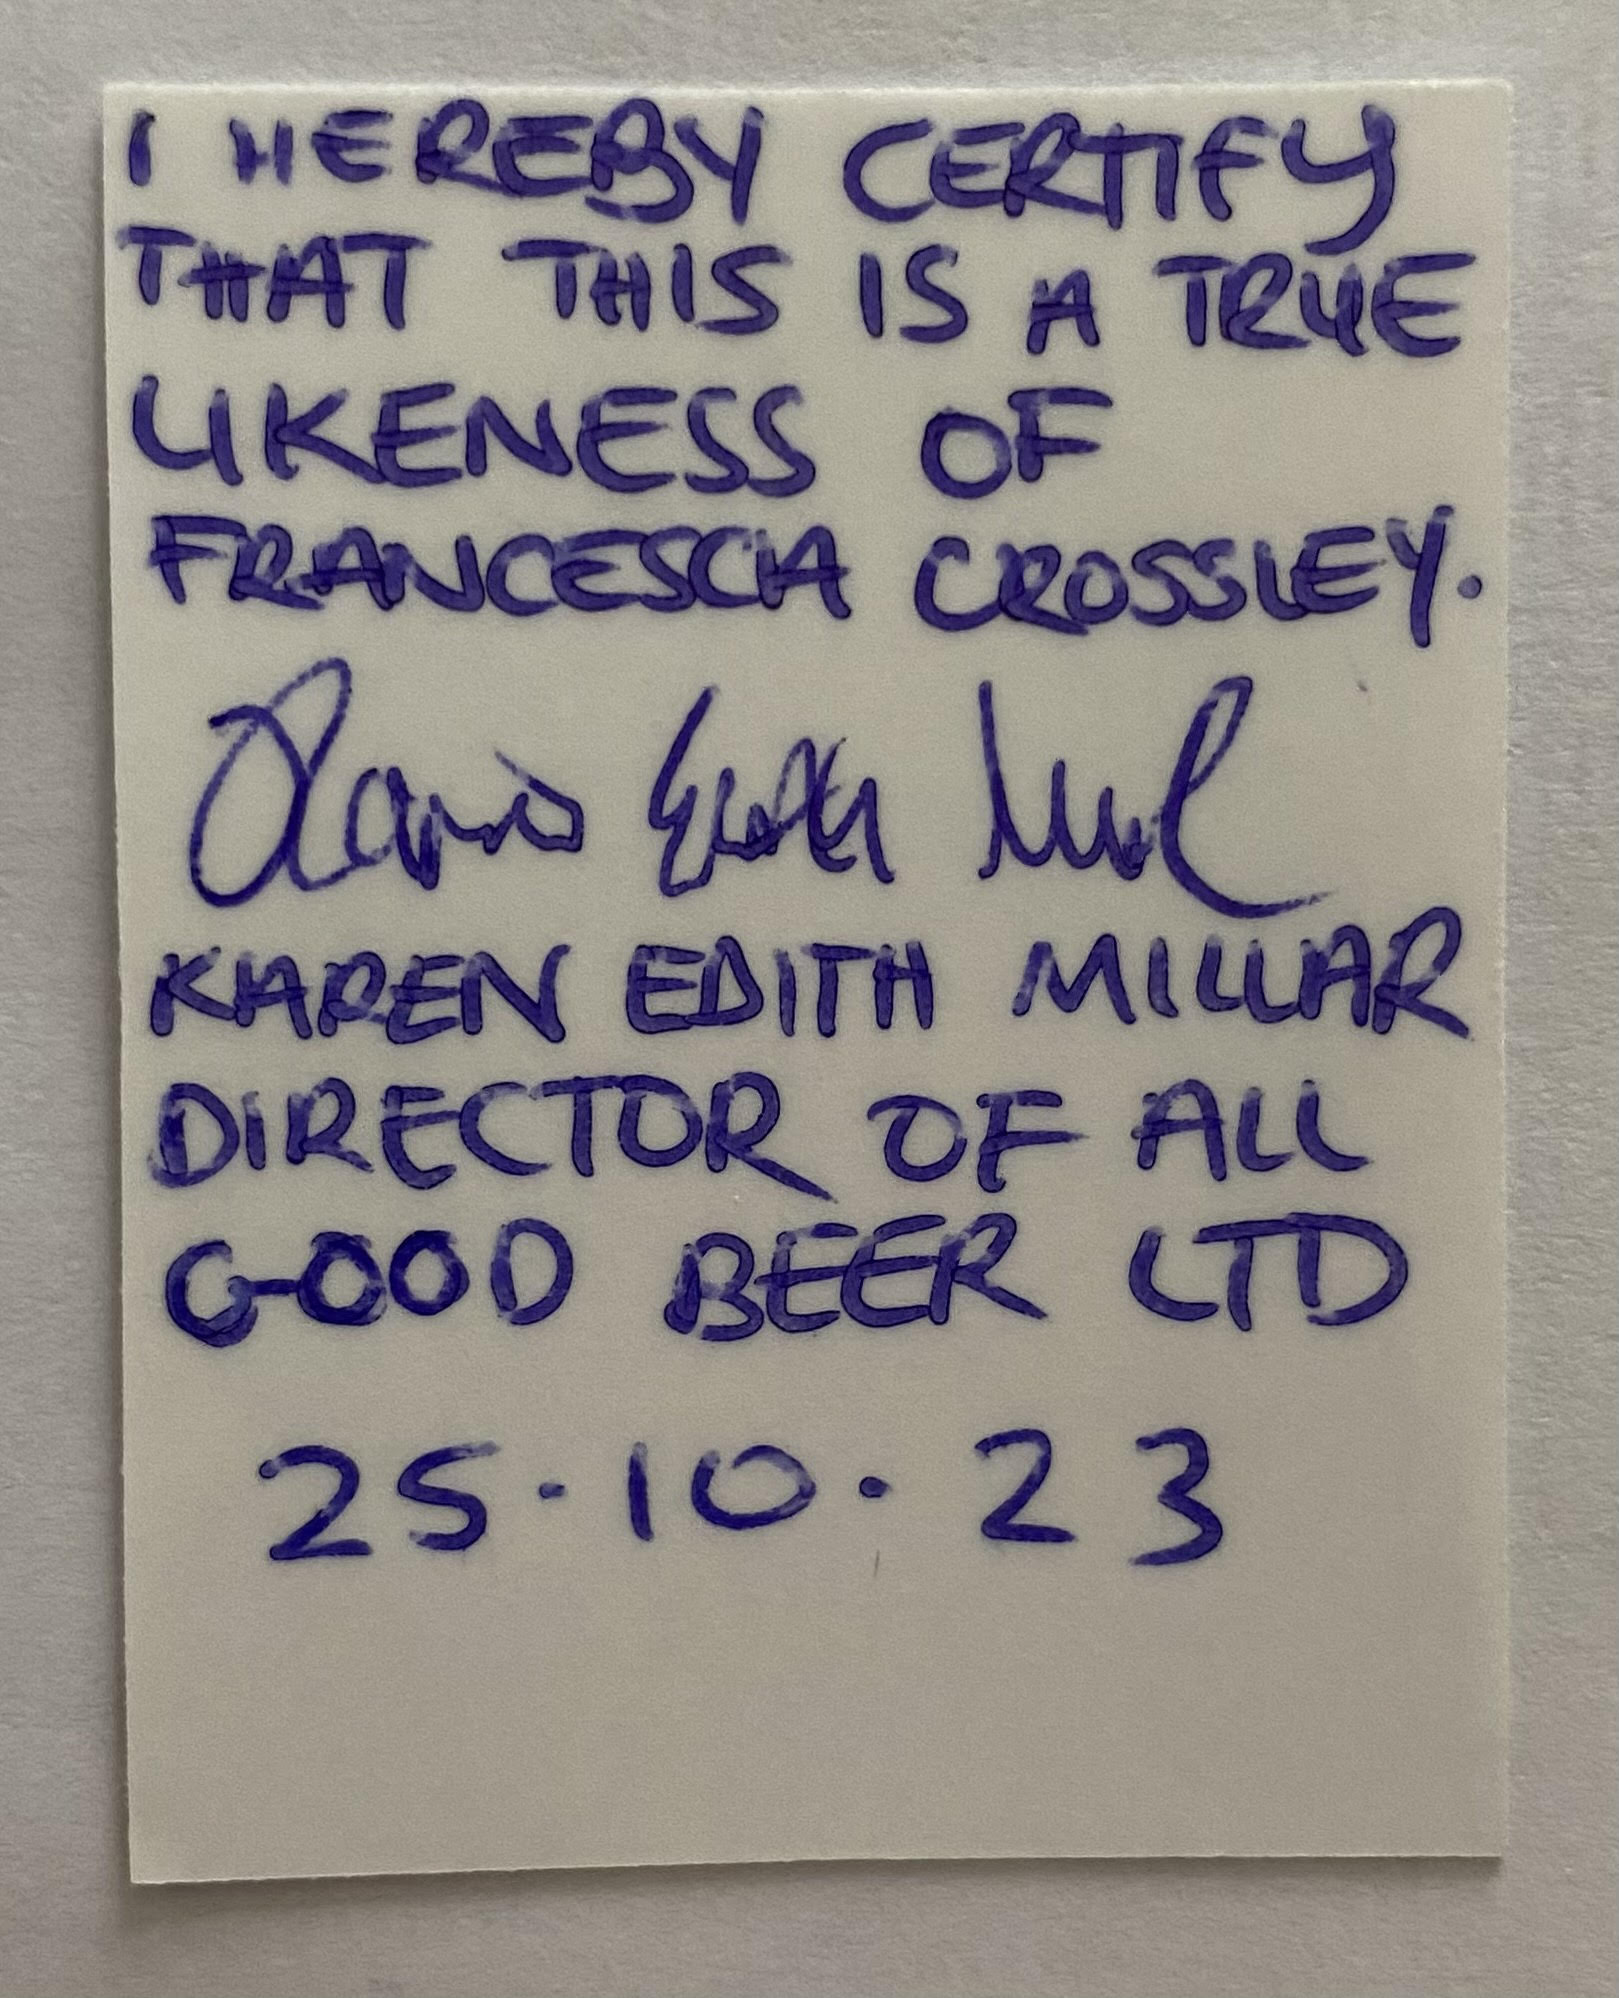 I HEREBY CERTIFY
THAT THIS IS A TRUE
LIKENESS OF
FRANCESCA CROSSLEY.
KAREN EDITH MILLAR
DIRECTOR OF ALL
GOOD BEER LTD
25.10.23